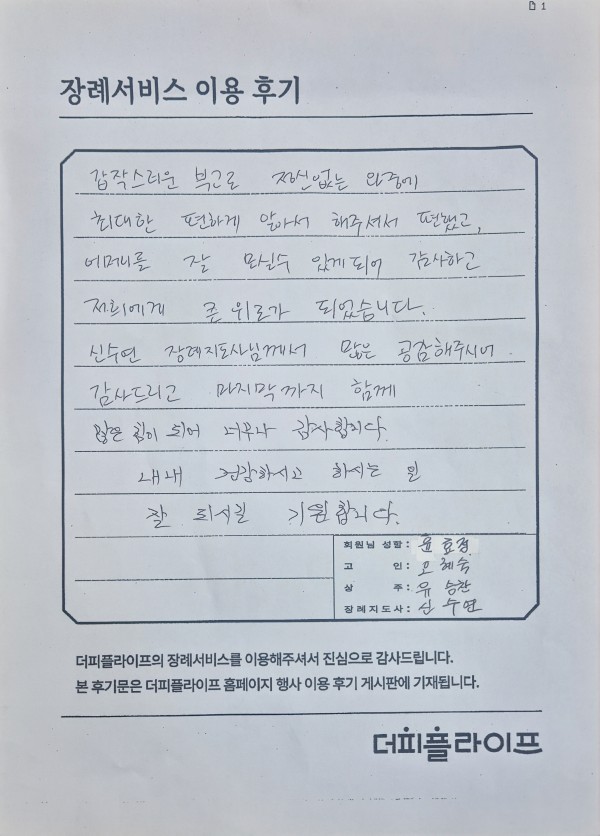 1
장례서비스 이용 후기
갑작스러운 부고로 정신없는 와중에
최대한 편하게 알아서 해주셔서 편했고,
어머니를 잘 모실수 있게되어 감사하고
저희에게 큰 위로가 되었습니다.
신수연 장례지도사님께서 많은 공감해주시어
감사드리고 마지막까지 함께
많은 힘이 되어 너무나 감사합니다.
내내 건강하시고 하시는 일
잘 되시길 기원합니다.
회원님 성함: 윤효정
고 인: 고혜숙
상 주: 유승찬
장례지도사: 신수연
더피플라이프의 장례서비스를 이용해주셔서 진심으로 감사드립니다.
본 후기문은 더피플라이프 홈페이지 행사 이용 후기 게시판에 기재됩니다.
더피플라이프